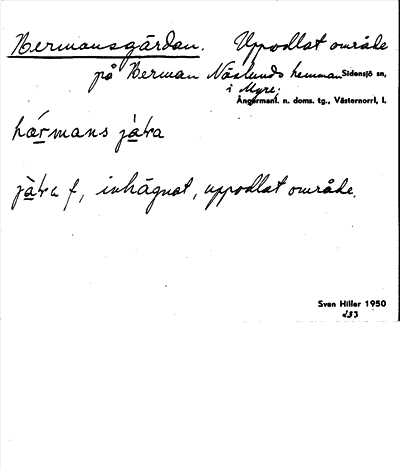 Hermansgärdan. Uppodlat område
på Herman Näslunds hemman Sidensjö sn,
i Myre.
Ångermanl. n. doms. tg., Västernorrl. l.
hármans já
já f, inhägnat, uppodlat område.
Sven Hiller 1950